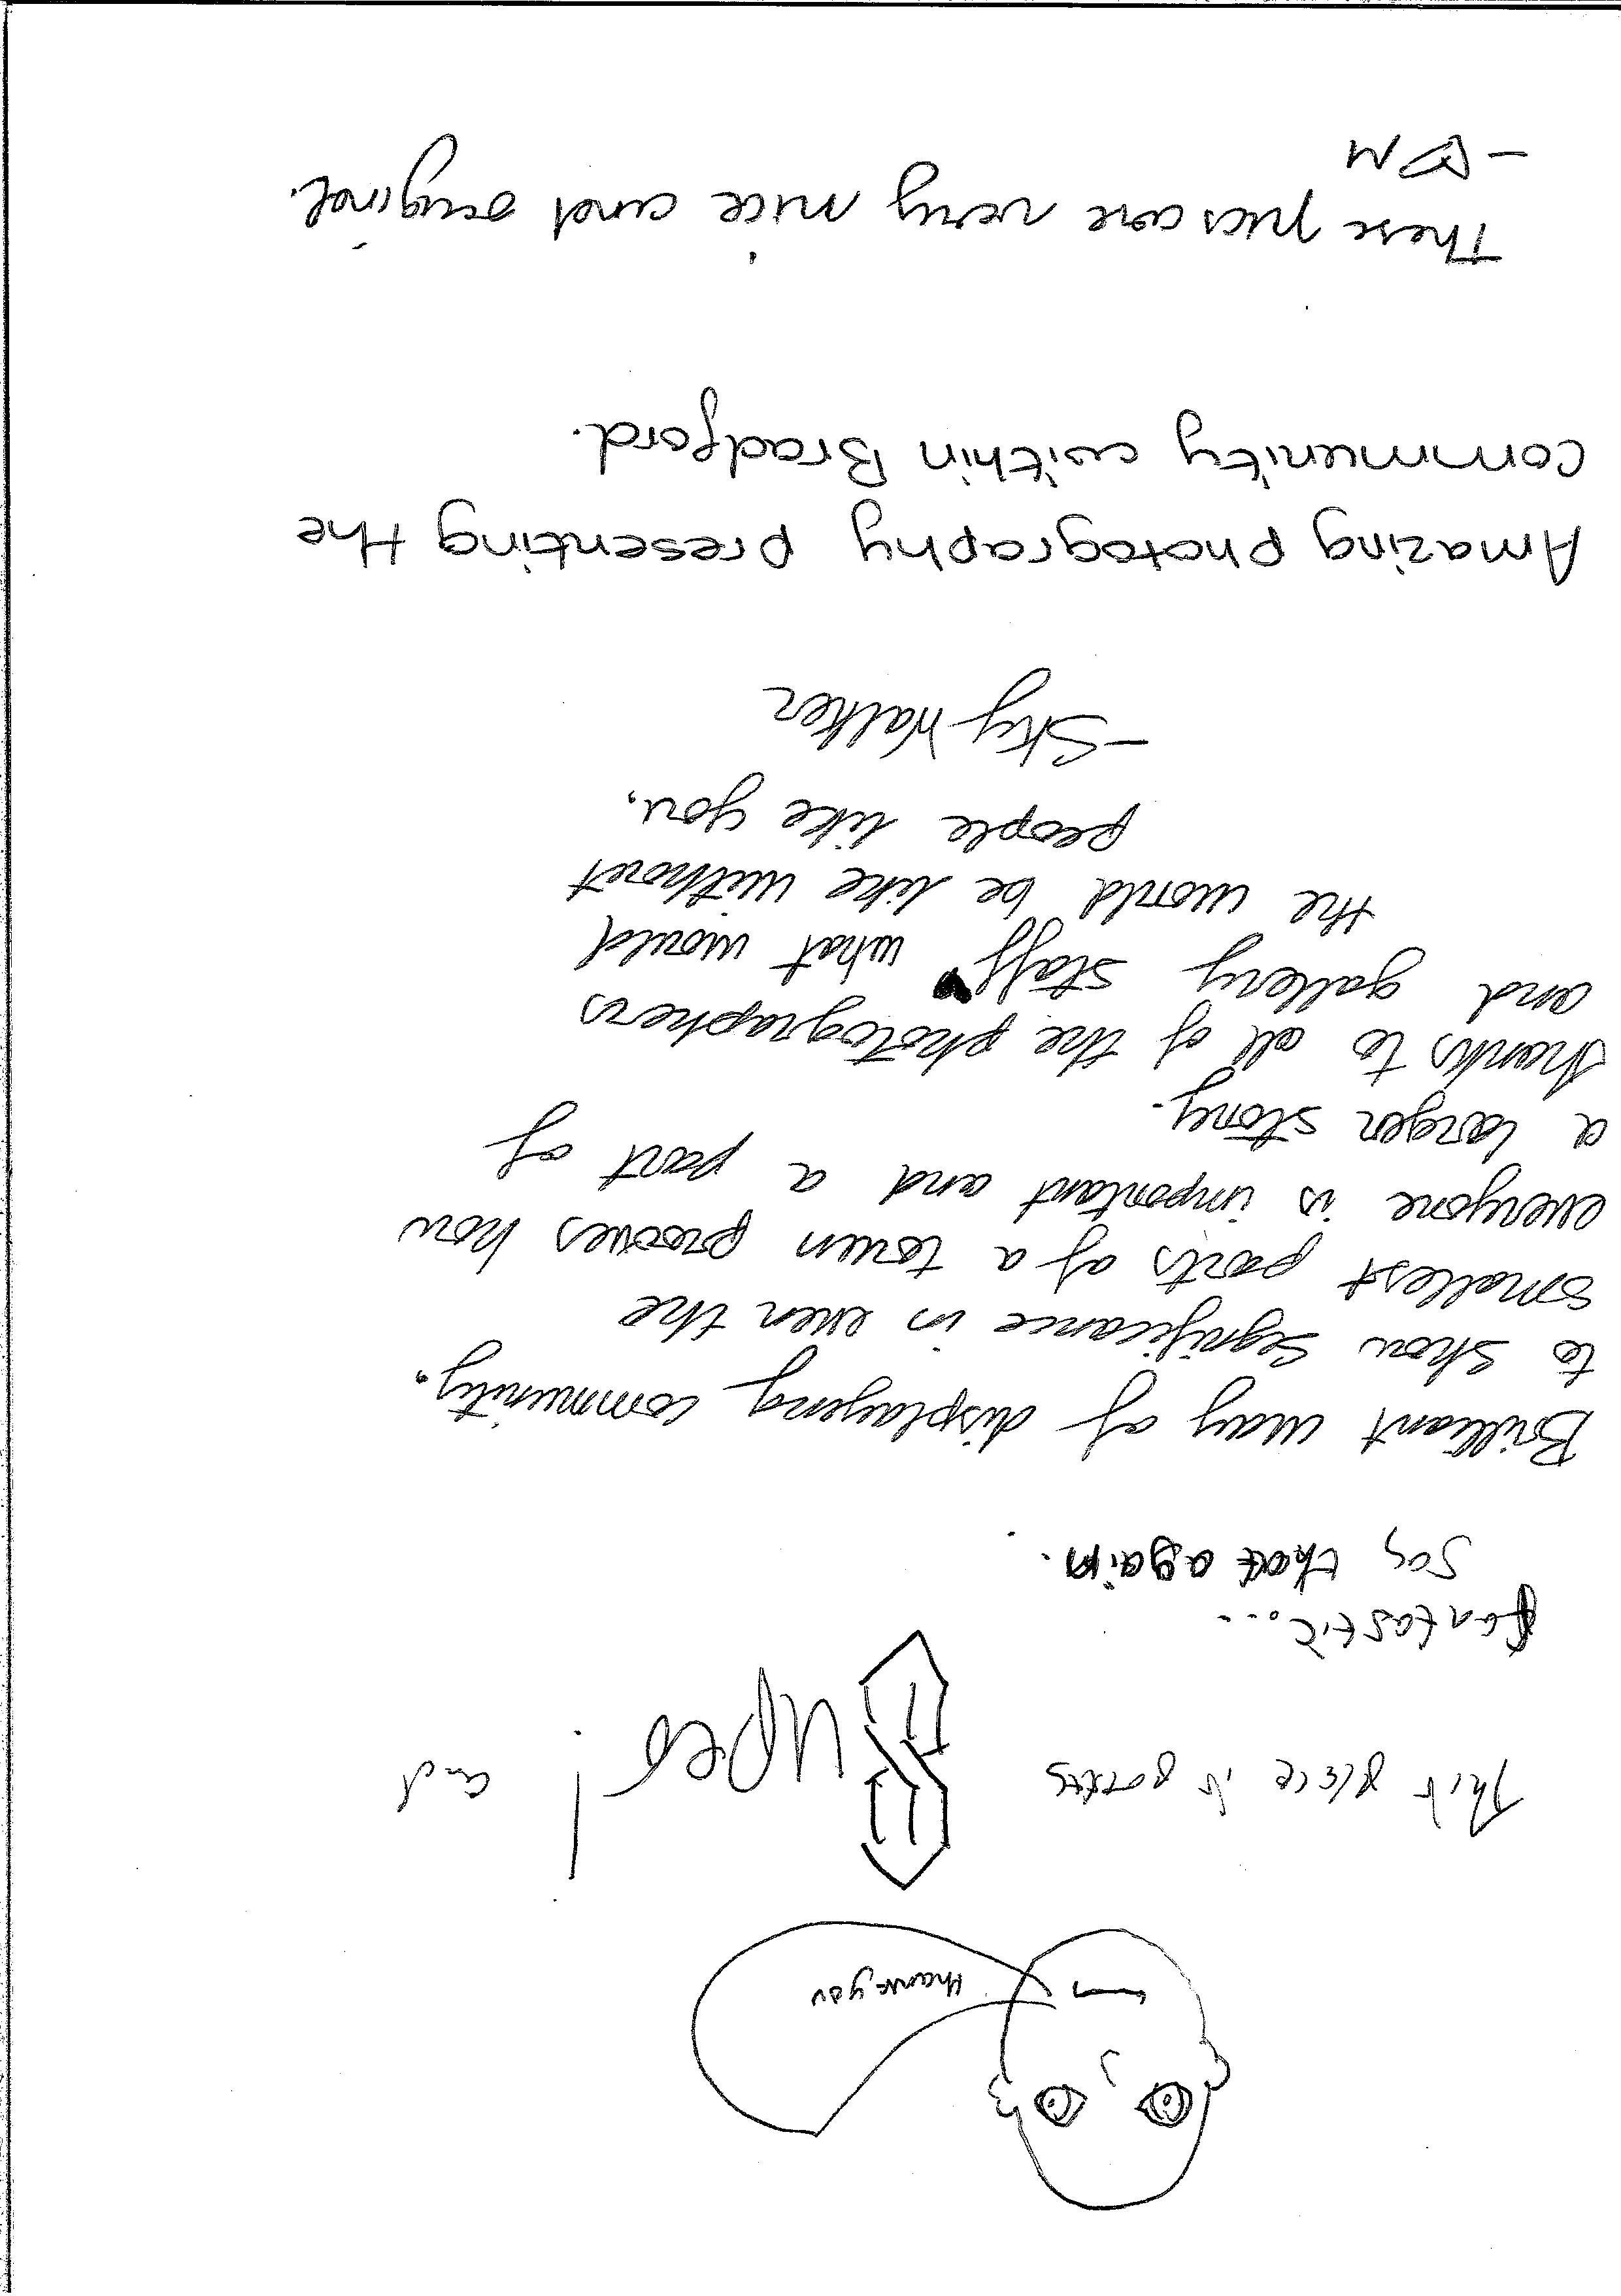 thank you
This place is Super! and
fantastic...
Say that again.
Brilliant way of displaying community.
to show significance in even the
smallest parts of a town prooves how
everyone is important and a part of
a larger story.
thanks to all of the photographers
and gallery staff what would
the world be like without
people like you.
- Sky Walker
Amazing photography presenting the
community within Bradford.
These pics are very nice and original.
- DM